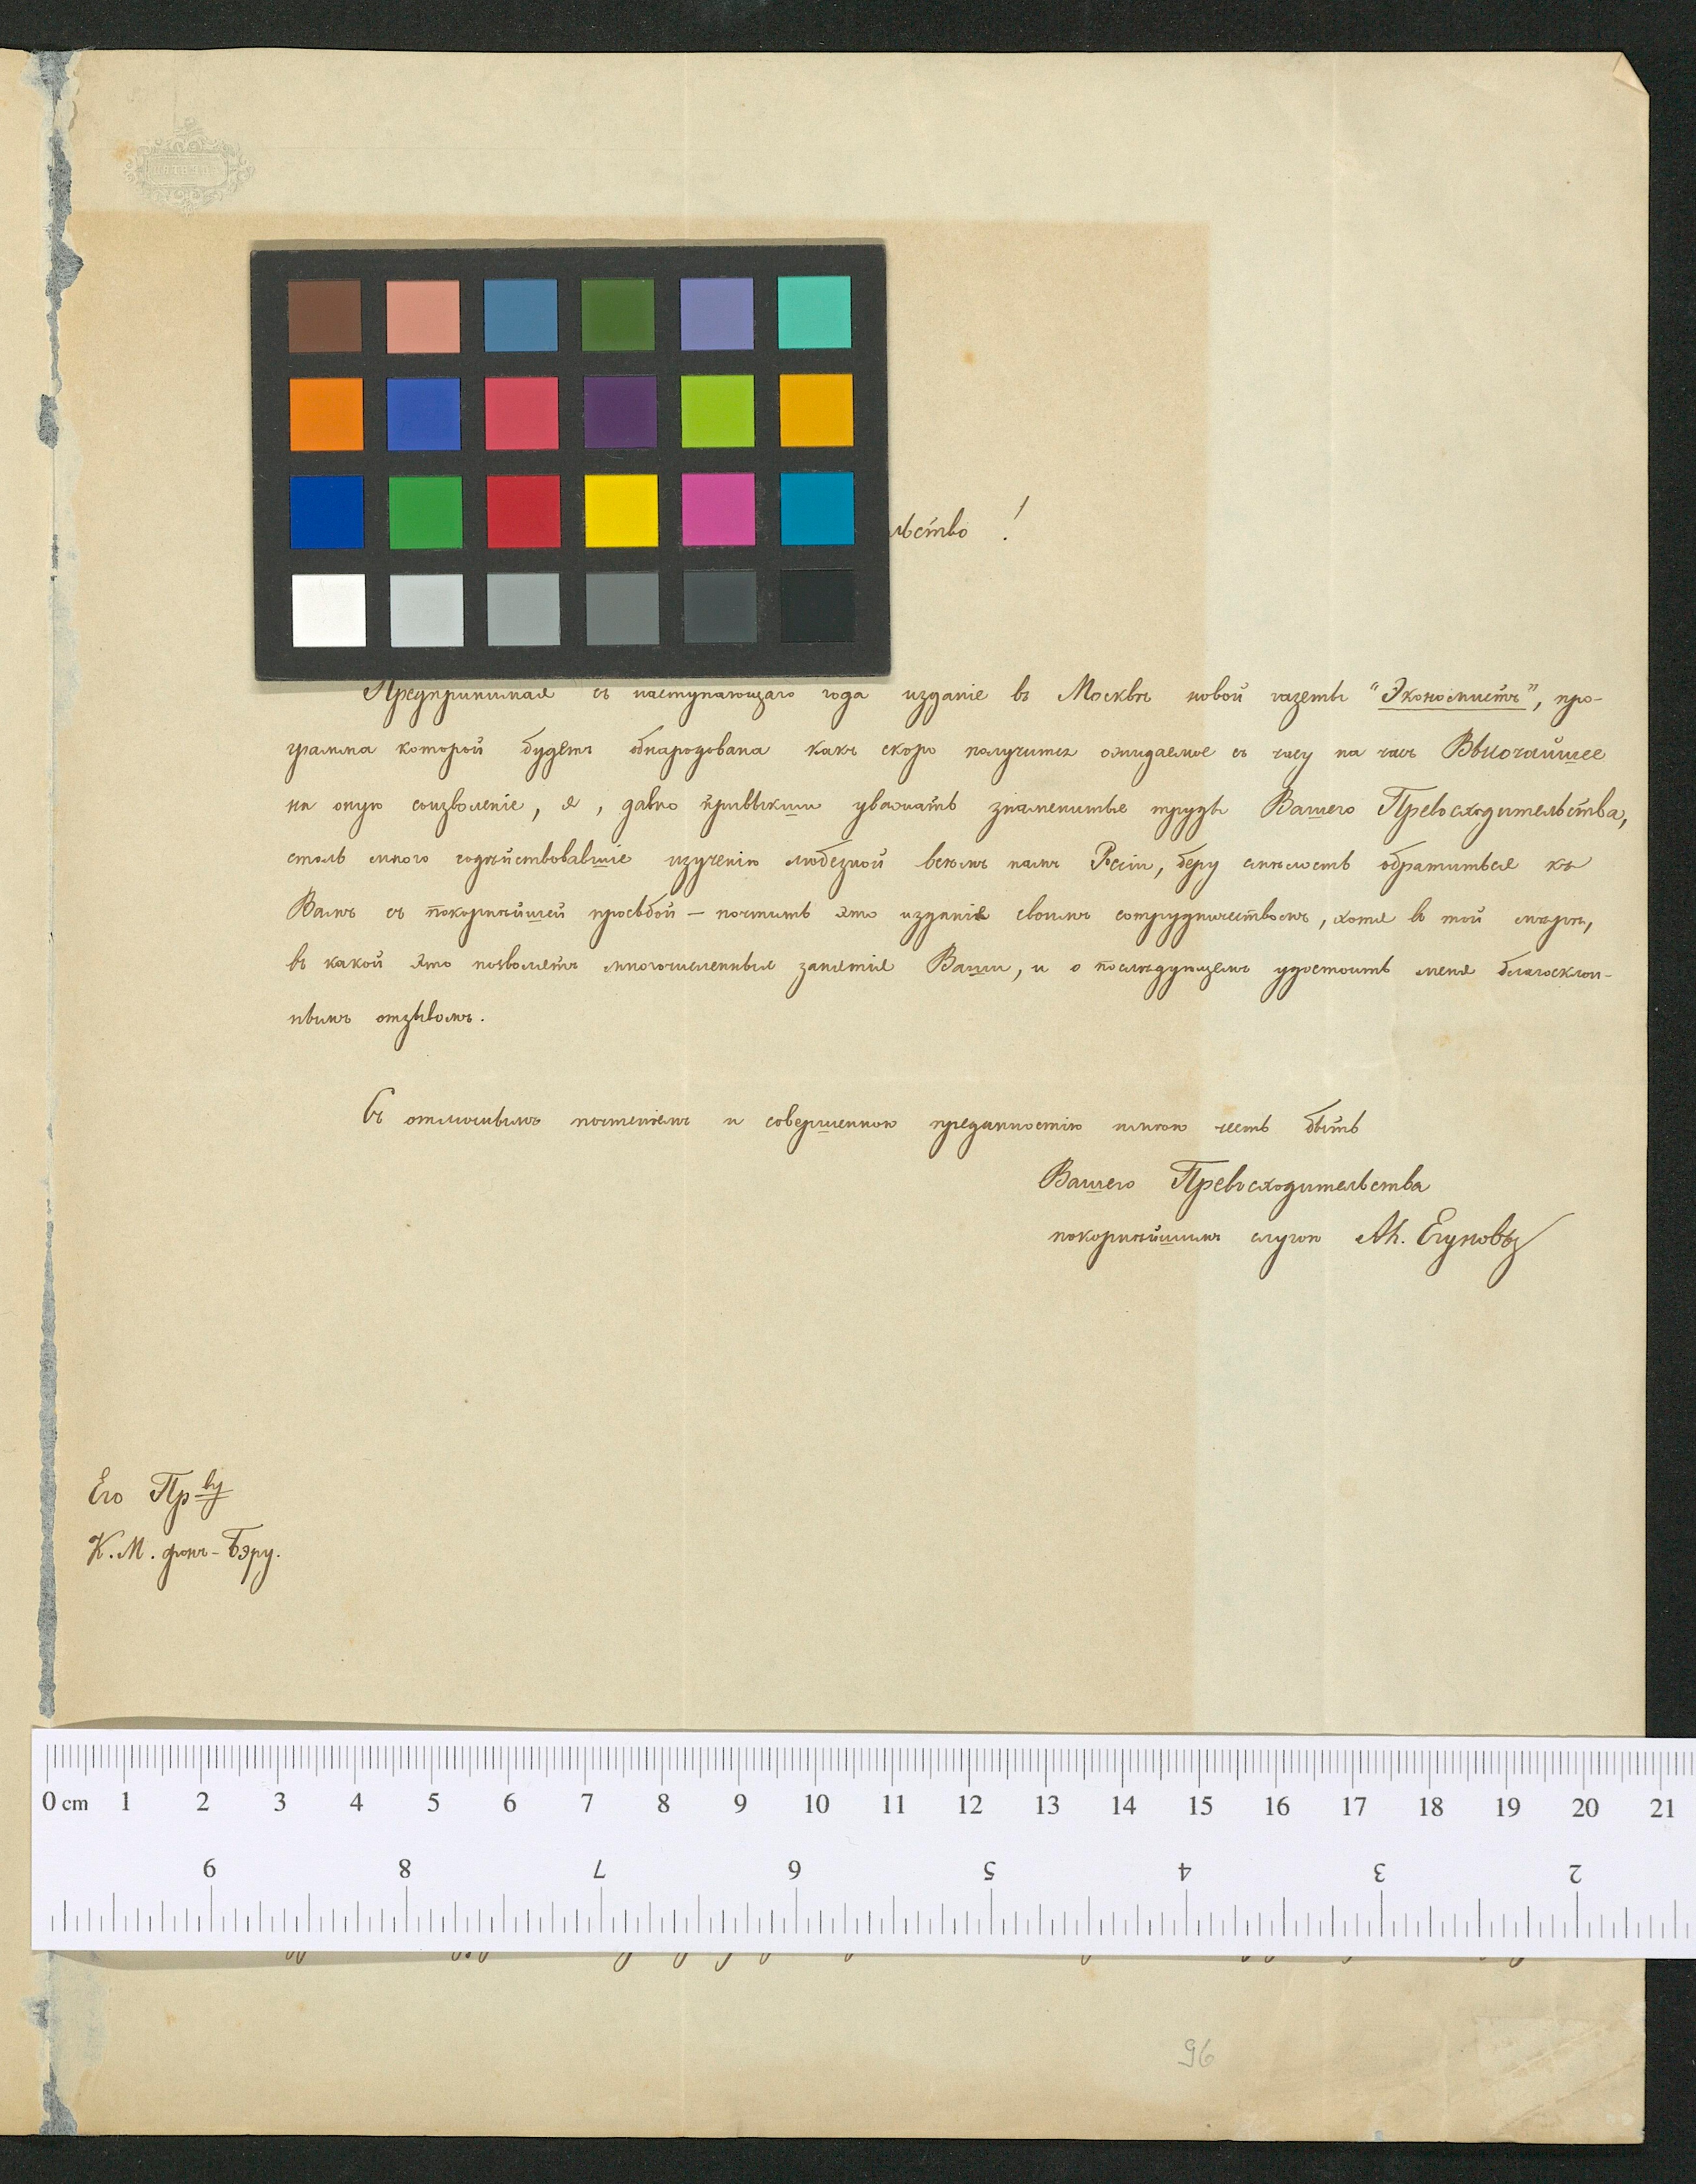 льство !
Предпринимая съ наступающаго года изданіе въ Москвѣ новой газеты "Экономистъ", про-
грамма которой будетъ обнародована какъ скоро получится ожидаемое съ часу на часъ Высочайшее
на оную соизволеніе, я, давно привыкши уважать знаменитые труды Вашего Превосходительства,
столь много содѣйствовавшіе изученію любезной всѣмъ намъ Россіи, беру смѣлость обратиться къ
Вамъ съ покорнѣйшей просьбой — почтить это изданіе своимъ сотрудничествомъ, хотя въ той мѣрѣ,
въ какой это позволятъ многочисленныя занятія Ваши, и о послѣдующемъ удостоить меня благосклон-
нымъ отзывомъ.
Съ отличнымъ почтеніемъ и совершенною преданностію имѣю честь быть
Вашего Превосходительства
покорнѣйшимъ слугою Ан. Егуновъ
Его Пр-ву
К. М. фонъ-Бэру.
0 cm 1 2 3 4 5 6 7 8 9 10 11 12 13 14 15 16 17 18 19 20 21
9 8 7 6 5 4 3 2
96